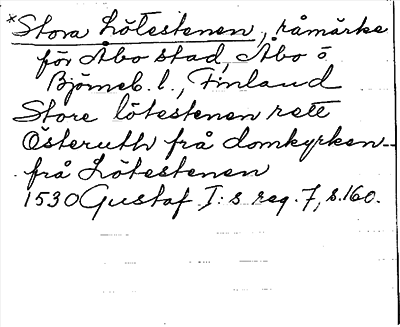 *Stora Lötestenen, råmärke
för Åbo stad, Åbo o
Björneb. l., Finland
Store lötestenen rett
Österuth frå domkyrken--
frå Lötestenen
1530 Gustaf I:s reg. 7, s.160.